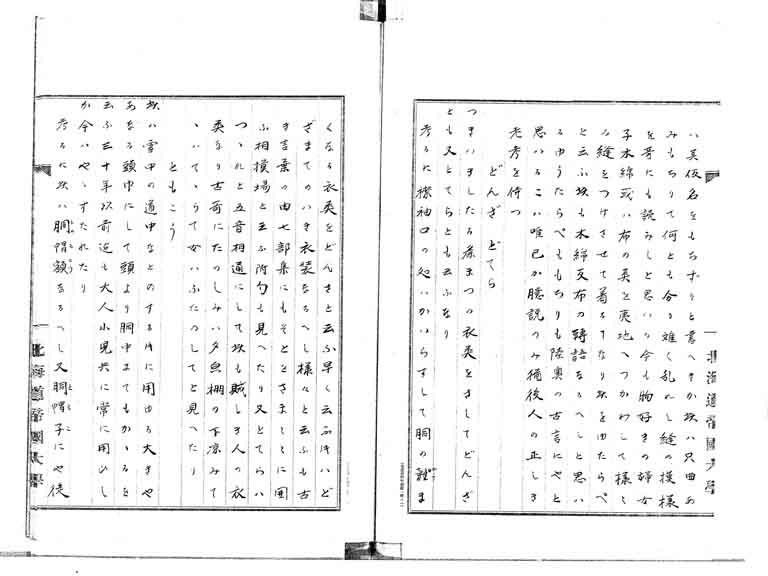 ハ美仮名をもちずりと書へきか坎ハ只曲あ
みもちりて何とも分り難く乱れし縫の模様
を哥にも読みしと思いの今も物好きの婦女
子木綿或ハ布の美を夷地へつかわして様々
の縫をつけさせて着るすなり坎をゆたらぺ
と云ふ坎も木綿反布の轉語なるへしと思ハ
るゆうたらぺももちりも陸奥の古言にやと
思ハるこハ唯己か臆説のみ猶後人の正しき
老考を侍つ
どんぎ どてら
つまいましたる危まつの衣美をさしてどんざ
とも又とてらとも云ふなり
考るに襟袖口の処ハかハらすして胴の
くなる衣美をどんきと云ふ早く云ふ時ハど
ざまてのハき衣装なるへし様々と云ふも古
き言葉の由七部集にもそとをさましくに
ふ相模場と云ふ附句も見へたり又とてらハ
つゝれと五音相通にして坎も賊しき人の衣
美なり古哥にたのしみハ夕皃棚の下凉みて
ゝいてゝらて女ハふたのしてと見へたり
ともこう
坎ハ雪中の道中なとのする時に用ゆる大きや
あなる頭巾にして頭より胴中までもかゝると
云ふ三十年以前迄も大人小児共に常に用ひし
か今ハやゝすたれたり
考るに坎ハ胴帽額なるへし又胴帽子にや従
北海道帝國大學
北海道帝國大學